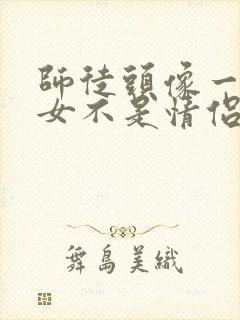 師徒頭像一
女不是情侶
舞島美織